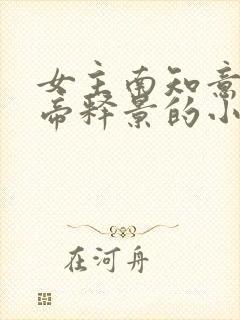 女主南知意
帝释景的小
在河舟